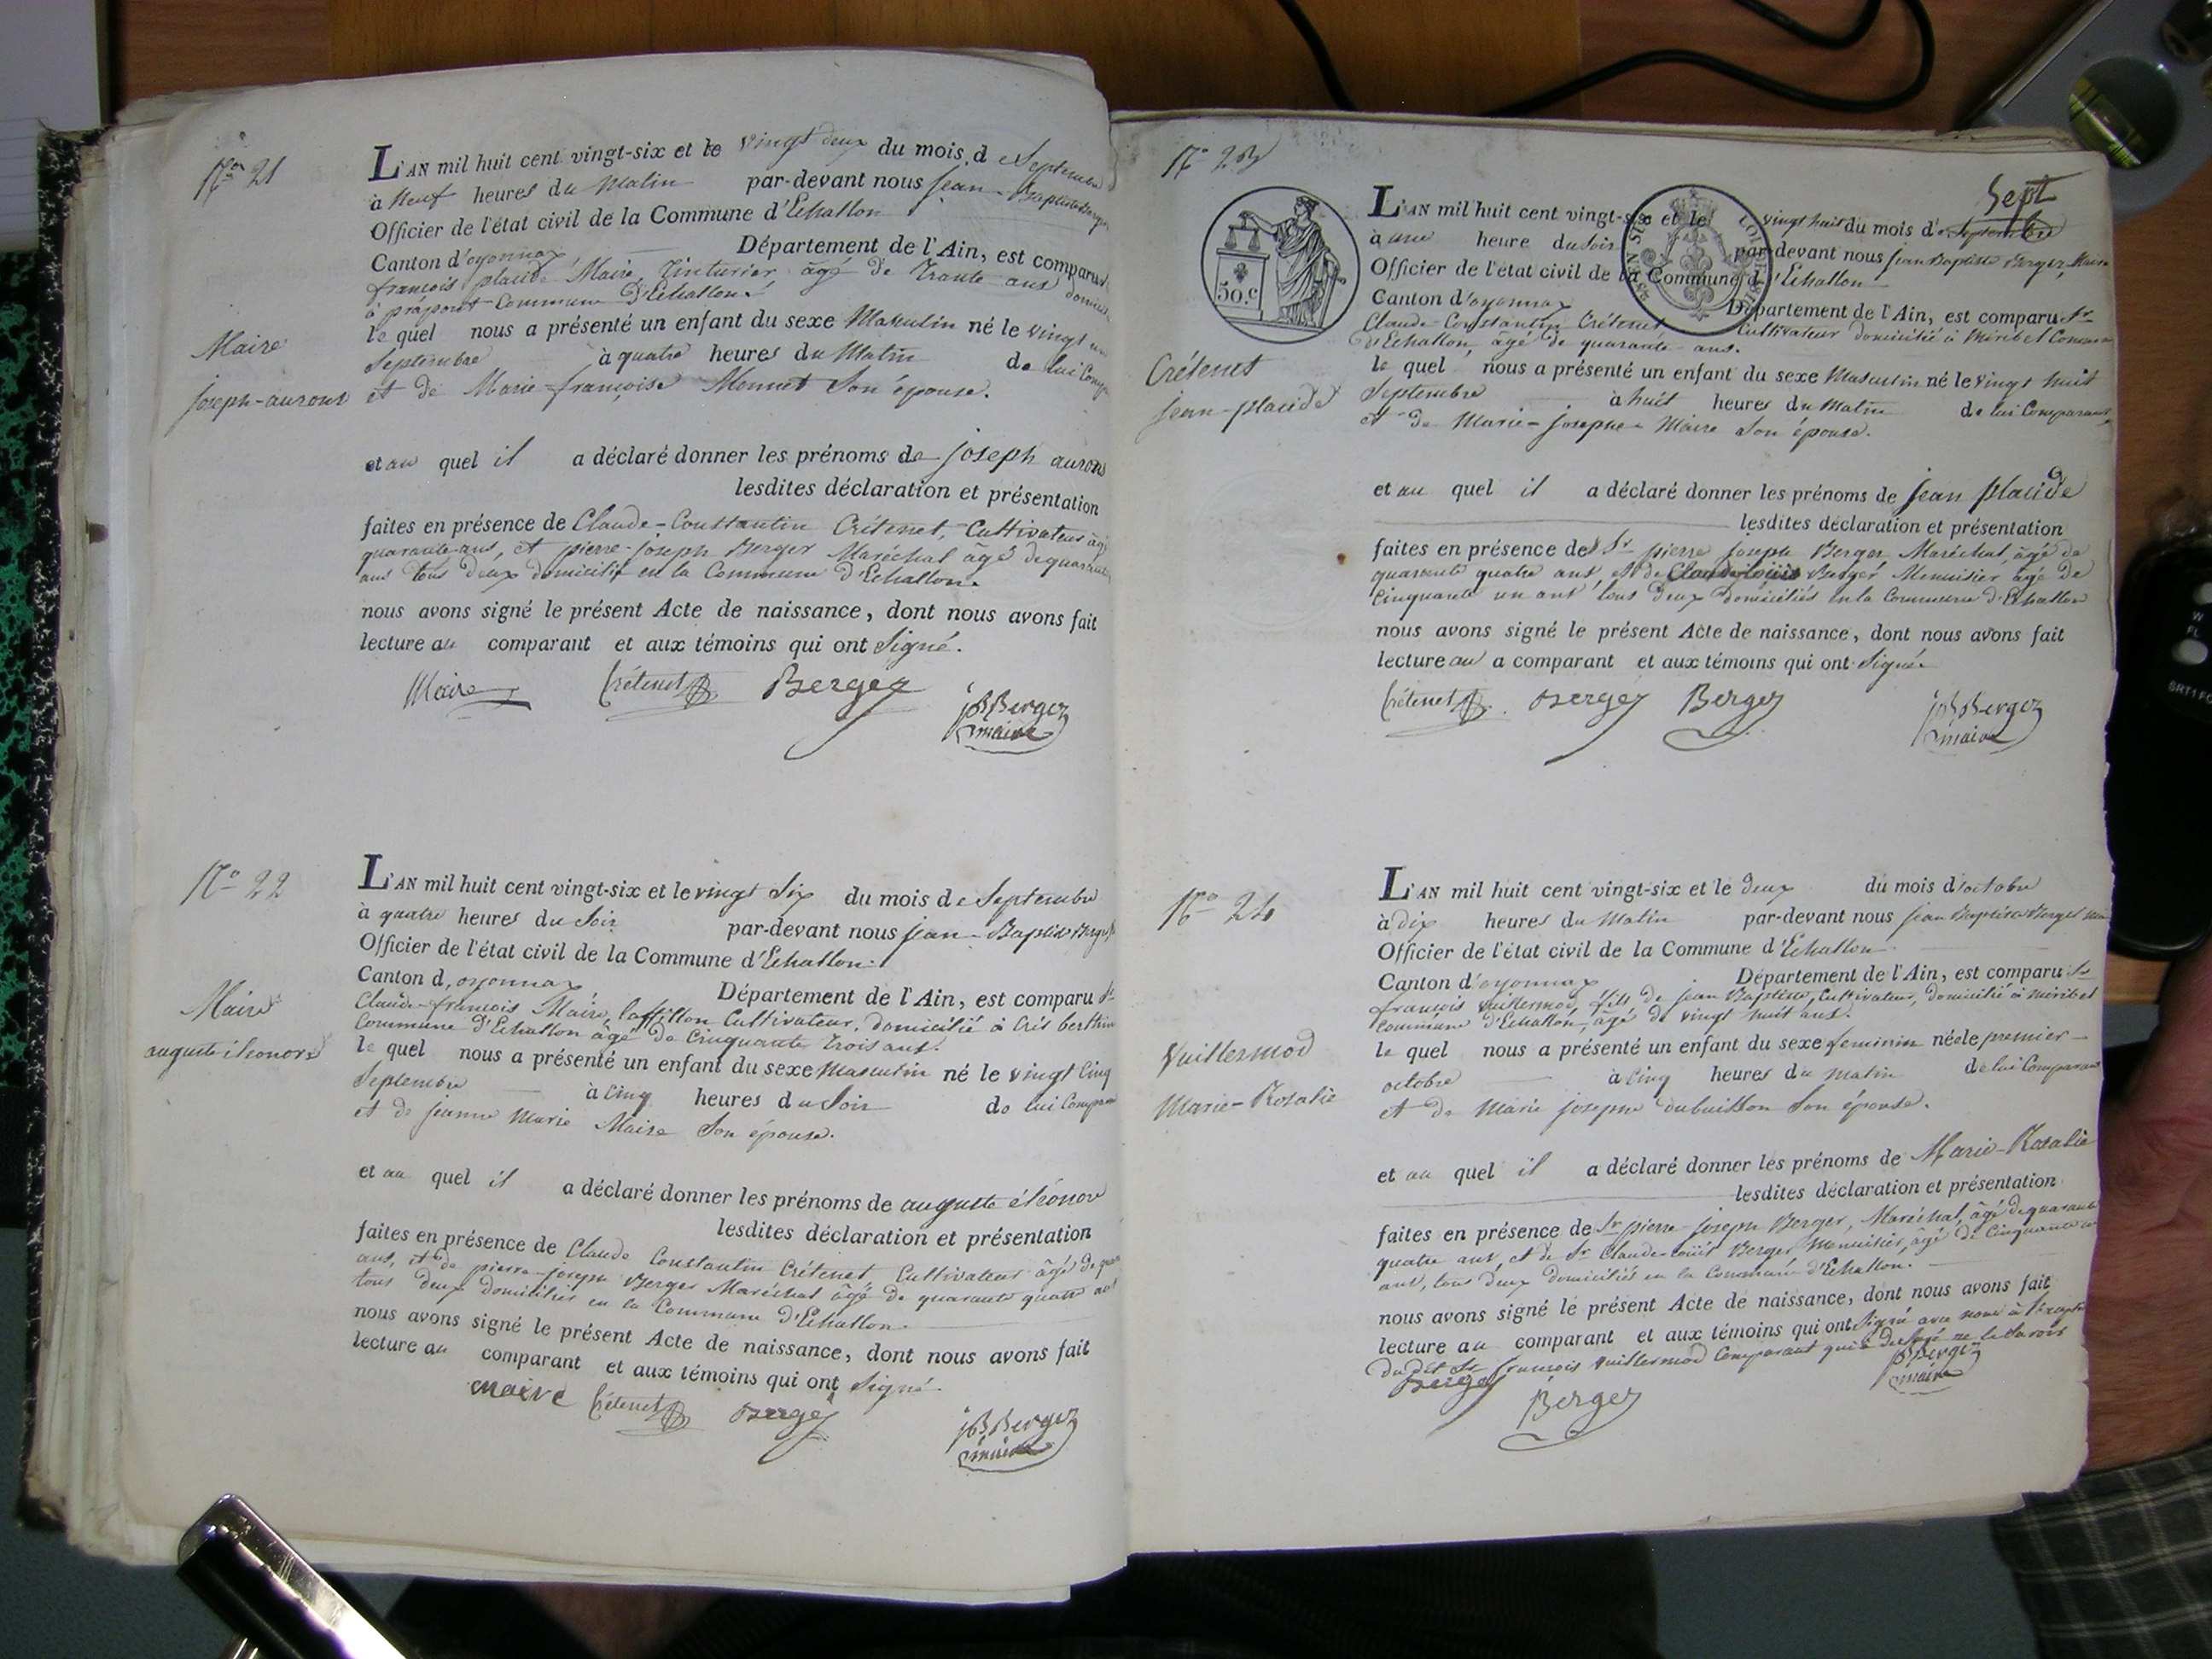 Nº 21
L'AN mil huit cent vingt-six et le vingt deux du mois de Septembre
à neuf heures du Matin par-devant nous jean-Baptiste Berger
Officier de l'état civil de la Commune d'Echallon
Canton d'oyonnax Département de l'Ain, est comparu
françois placide Maire, Tinturier âgé de Trante ans
à prapont Commune d'Echallon.
le quel nous a présenté un enfant du sexe Masculin né le vingt un
Maire
Septembre à quatre heures du Matin de lui
joseph-aurons
et de Marie-françoise Monnet Son épouse.
et au quel il a déclaré donner les prénoms de joseph aurons
lesdites déclaration et présentation
faites en présence de Claude-Constantin Crétenet, Cultivateur âgé
quarante ans, et pierre-joseph Berger Maréchal âgé de quarante
ans tous deux domiciliés en la Commune d'Echallon.
nous avons signé le présent Acte de naissance, dont nous avons fait
lecture au comparant et aux témoins qui ont Signé.
Maire Crétenet Berger jB Berger
maire
Nº 22
L'AN mil huit cent vingt-six et le vingt Six du mois de Septembre
à quatre heures du Soir par-devant nous jean-Baptiste Berger
Officier de l'état civil de la Commune d'Echallon.
Canton d, oyonnax Département de l'Ain, est comparu Sr
Claude-françois Maire, Cultivateur, domicilié à
Commune d'Echallon âgé de Cinquante trois ans.
Maire
le quel nous a présenté un enfant du sexe Masculin né le vingt Cinq
auguste éléonore
Septembre à Cinq heures du Soir de lui
et de jeanne Marie Maire Son épouse.
et au quel il a déclaré donner les prénoms de auguste éléonor
lesdites déclaration et présentation
faites en présence de Claude Constantin Crétenet Cultivateur âgé de
ans, et de pierre-joseph Berger Maréchal âgé de quarante quatre ans
tous deux domiciliés en la Commune d'Echallon.
nous avons signé le présent Acte de naissance, dont nous avons fait
lecture au comparant et aux témoins qui ont Signé
maire Crétenet Berger jB Berger
maire
Nº 23
Sept
L'AN mil huit cent vingt-six et le vingt huit du mois de Septembre
50.c
à une heure du Soir par-devant nous jean Baptiste Berger, Maire
Officier de l'état civil de la Commune d'Echallon
Canton d'oyonnax Département de l'Ain, est comparu Sr
Claude-Constantin Crétenet Cultivateur domicilié à Miribel Commune
d'Echallon, âgé de quarante ans.
Crétenet
le quel nous a présenté un enfant du sexe Masculin né le vingt huit
jean-placide
Septembre à huit heures du Matin de lui Comparant,
et de Marie-josephe Maire Son épouse.
et au quel il a déclaré donner les prénoms de jean placide
lesdites déclaration et présentation
faites en présence des Sr pierre joseph Berger, Maréchal, âgé de
quarante quatre ans, et de Claude louis Berger Menuisier âgé de
Cinquante un ans tous deux domiciliés en la Commune d'Echallon
nous avons signé le présent Acte de naissance, dont nous avons fait
lecture au a comparant et aux témoins qui ont Signé.
Crétenet Berger Berger jB Berger
maire
Nº 24
L'AN mil huit cent vingt-six et le deux du mois d'octobre
à dix heures du Matin par-devant nous jean Baptiste Berger
Officier de l'état civil de la Commune d'Echallon
Canton d'oyonnax Département de l'Ain, est comparu Sr
françois Vuillermod, fils de jean Baptiste, Cultivateur, domicilié à miribel
Commune d'Echallon, âgé de vingt huit ans.
Vuillermod
le quel nous a présenté un enfant du sexe feminin née le premier
Marie-Rosalie
octobre à Cinq heures du Matin de lui Comparant
et de Marie josephe dubuisson Son épouse.
et au quel il a déclaré donner les prénoms de Marie-Rosalie
lesdites déclaration et présentation
faites en présence de Sr pierre-joseph Berger, Maréchal, âgé de quarante
quatre ans, et de Sr Claude-louis Berger Menuisier, âgé de Cinquante un
ans, tous deux domiciliés en la Commune d'Echallon.
nous avons signé le présent Acte de naissance, dont nous avons fait
lecture au comparant et aux témoins qui ont Signé avec nous à
du dit Sr françois Vuillermod Comparant qui a ne le Savoir
Berger Berger jB Berger
maire